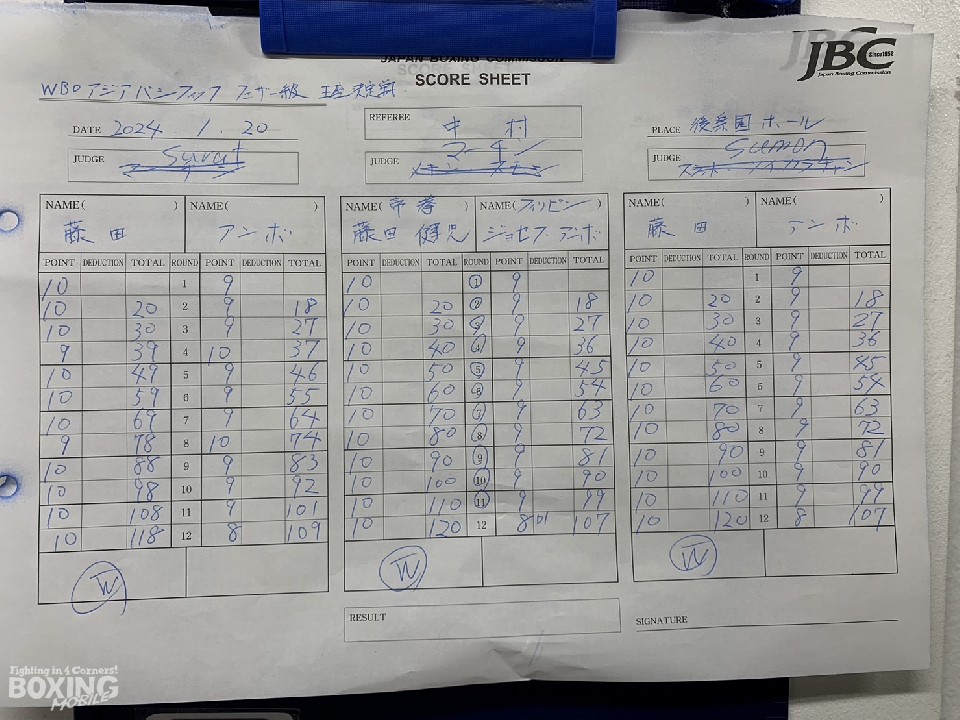 JAPAN BOXING COMMISSION
SCORE SHEET
JBC
Since1952
Japan Boxing Commission
WBOアジアパシフィック フェザー級 王座決定戦
DATE 2024.1.20
REFEREE 中村
PLACE 後楽園ホール
JUDGE Surat
JUDGE マーチン
JUDGE
NAME( ) NAME( ) NAME(帝拳) NAME(フィリピン) NAME( ) NAME( )
藤田 アンボ 藤田 健児 ジョセフ アンボ 藤田 アンボ
POINT DEDUCTION TOTAL ROUND POINT DEDUCTION TOTAL POINT DEDUCTION TOTAL ROUND POINT DEDUCTION TOTAL POINT DEDUCTION TOTAL ROUND POINT DEDUCTION TOTAL
10 1 9 10 1 9 10 1 9
10 20 2 9 18 10 20 2 9 18 10 20 2 9 18
10 30 3 9 27 10 30 3 9 27 10 30 3 9 27
9 39 4 10 37 10 40 4 9 36 10 40 4 9 36
10 49 5 9 46 10 50 5 9 45 10 50 5 9 45
10 59 6 9 55 10 60 6 9 54 10 60 6 9 54
10 69 7 9 64 10 70 7 9 63 10 70 7 9 63
9 78 8 10 74 10 80 8 9 72 10 80 8 9 72
10 88 9 9 83 10 90 9 9 81 10 90 9 9 81
10 98 10 9 92 10 100 10 9 90 10 100 10 9 90
10 108 11 9 101 10 110 11 9 99 10 110 11 9 99
10 118 12 8 109 10 120 12 8 D1 107 10 120 12 8 107
W W W
RESULT
SIGNATURE
Fighting in 4 Corners!
BOXING
MOBILE